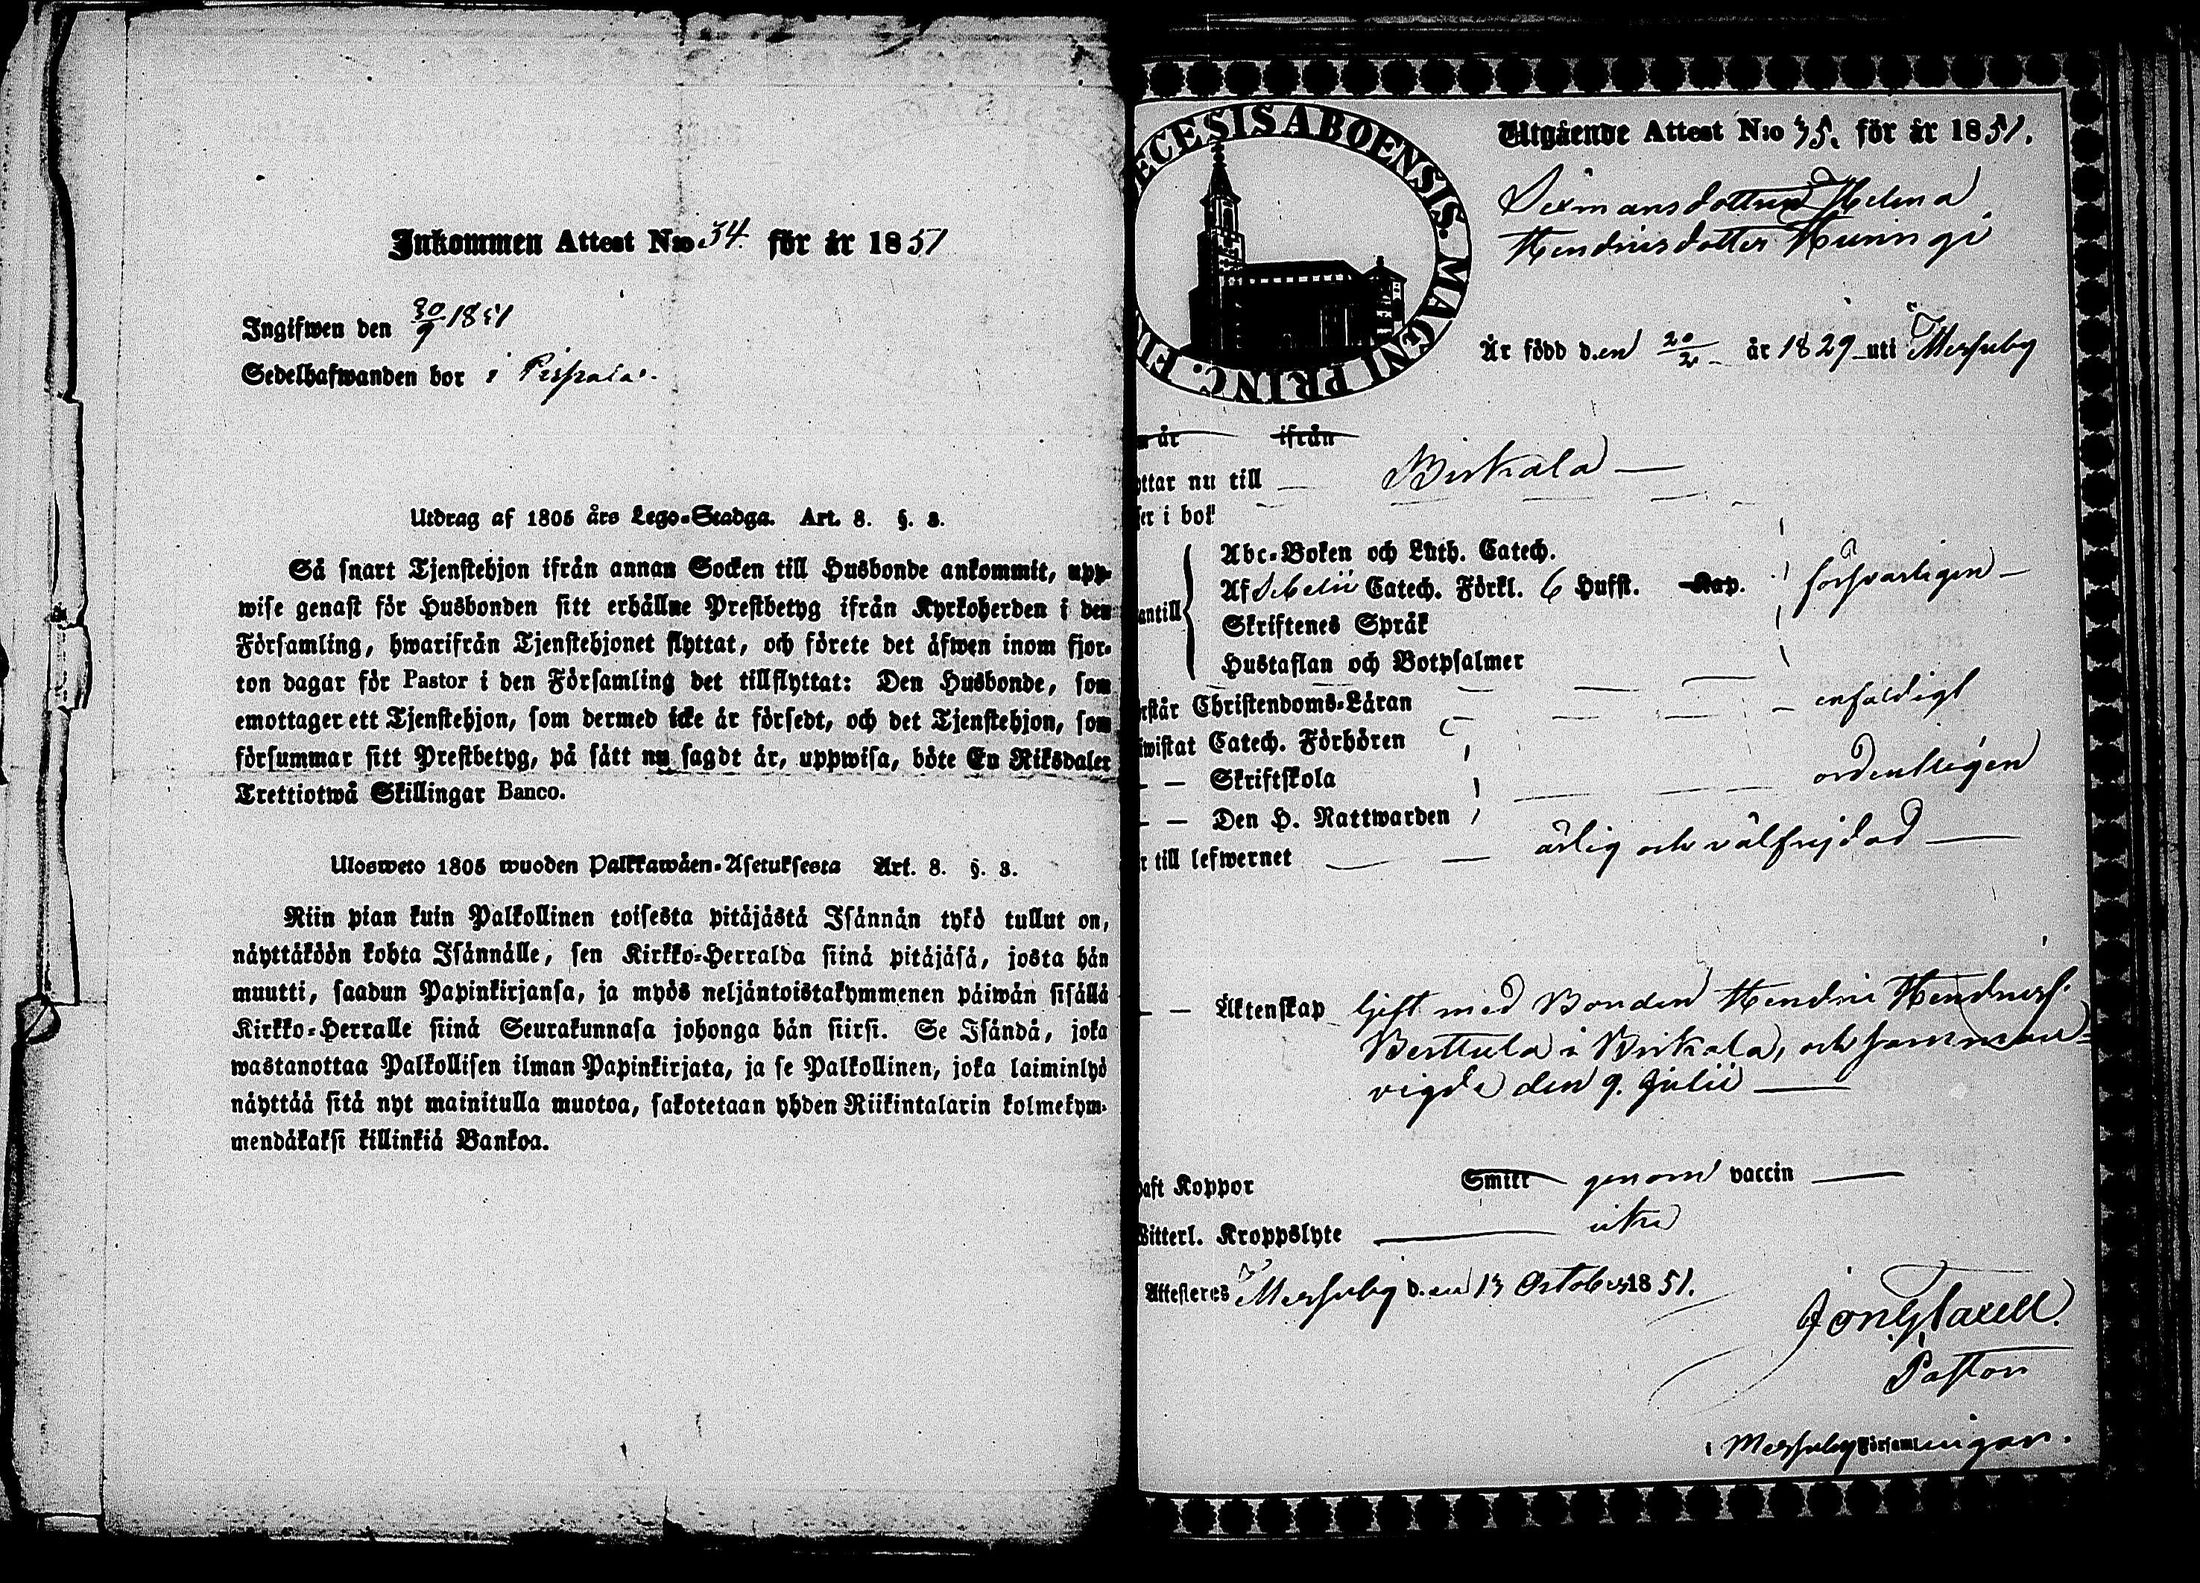 Inkommen Attest N:o 34 för år 1851
Ingifwen den 30/9 1851
Sedelhafwanden bor i Pispala.
Utdrag af 1805 års Lego-Stadga. Art. 8. §. 3.
Så snart Tjenstehjon ifrån annan Socken till Husbonde ankommit, upp-
wise genast för Husbonden sitt erhållne Prestbetyg ifrån Kyrkoherden i den
Församling, hwarifrån Tjenstehjonet flyttat, och förete det äfwen inom fjor-
ton dagar för Pastor i den Församling det tillflyttat: Den Husbonde, som
emottager ett Tjenstehjon, som dermed icke är försedt, och det Tjenstehjon, som
försummar sitt Prestbetyg, på sätt nu sagdt är, uppwisa, böte En Riksdaler
Trettiotwå Skillingar Banco.
Ulosweto 1805 wuoden Palkkawäen-Asetuksesta Art. 8. §. 3.
Niin pian kuin Palkollinen toisesta pitäjästä Isännän tykö tullut on,
näyttäköön kohta Isännälle, sen Kirkko-Herralda siinä pitäjäsä, josta hän
muutti, saadun Papinkirjansa, ja myös neljäntoistakymmenen päiwän sisällä
Kirkko-Herralle siinä Seurakunnasa johonga hän siirsi. Se Isändä, joka
wastanottaa Palkollisen ilman Papinkirjata, ja se Palkollinen, joka laiminlyö
näyttää sitä nyt mainitulla muotoa, sakotetaan yhden Riikintalarin kolmekym-
mendäkaksi killinkiä Bankoa.
ECESIS ABOENSIS. MAGNI PRINC. FI
Utgående Attest N:o 35. för år 1851.
Helena
Hendricsdotter Huningi
Är född d.en 20/2 år 1829 uti Messuby
år ifrån
ttar nu till Birkala
er i bok
Abc-Boken och Luth. Catech.
Af Sebelii Catech. Förkl. 6 Hufst. Kap. försvarligen
antill
Skriftenes Språk
Hustaflan och Botpsalmer
rstår Christendoms-Läran enfaldigt
iwistat Catech. Förhören
— — Skriftskola ordentligen
— — Den H. Nattwarden
r till lefwernet ärlig och välfrejdad
— — Äktenskap Gift med Bonden Hendric Hendricss.
Berttula i Birkala, och samman-
vigde den 9. Julii
haft Koppor Smitt genom vaccin
Witterl. Kroppslyte icke
Attesteres Messuby d.en 13 October 1851.
Pastor
i Messuby Församlingar.